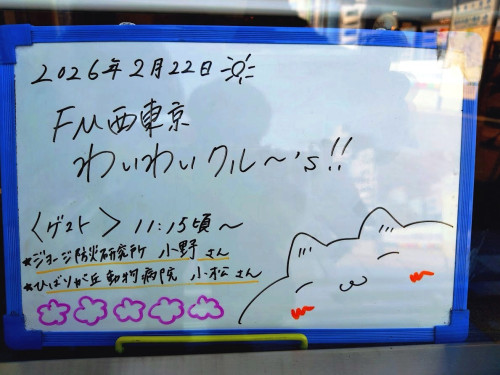 2026年2月22日
FM西東京
わいわいクル〜's!!
〈ゲスト〉 11:15頃〜
★ジョージ防災研究所 小野さん
★ひばりが丘動物病院 小松さん